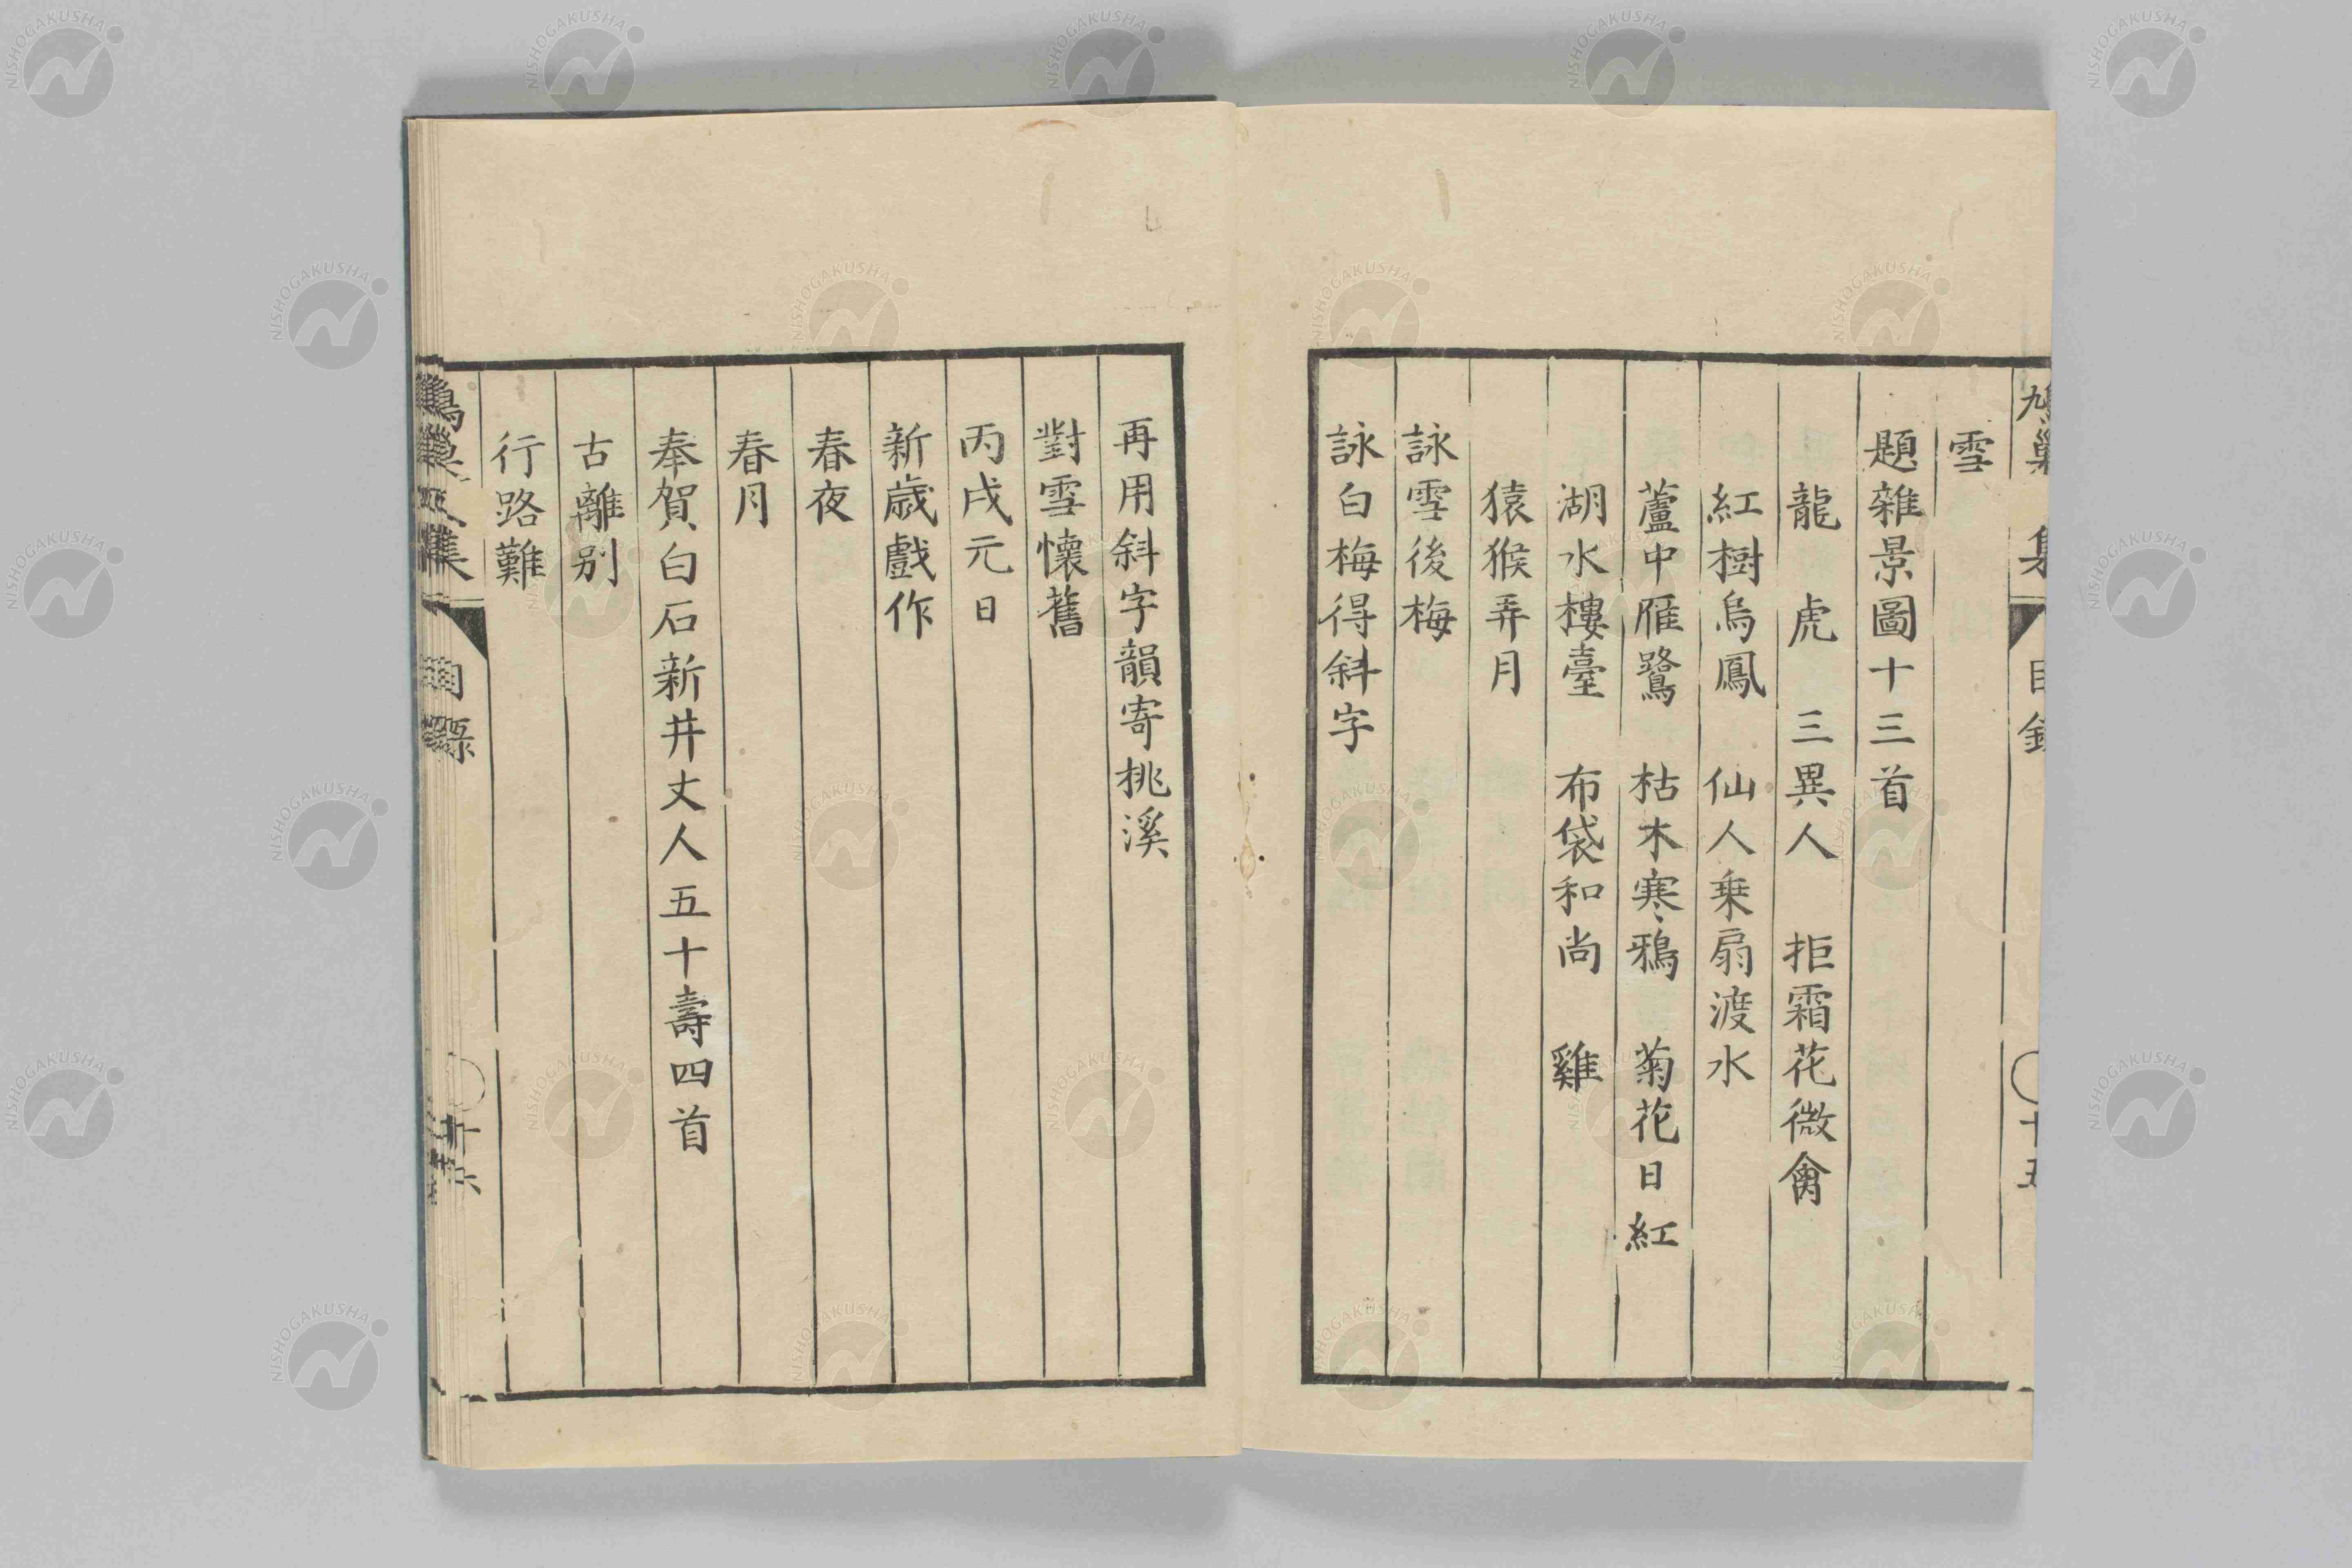 雪
題雜景圖十三首
龍　虎　三異人　拒霜花微禽
紅樹烏鳳　仙人乗扇渡水
蘆中雁鷺　枯木寒鴉　菊花日紅
湖水樓臺　布袋和尚　雞
猿猴弄月
詠雪後梅
詠白梅得斜字
再用斜字韻寄桃溪
對雪懷舊
丙戌元日
新歳戲作
春夜
春月
奉賀白石新井丈人五十壽四首
古離別
行路難
NISHOGAKUSHA